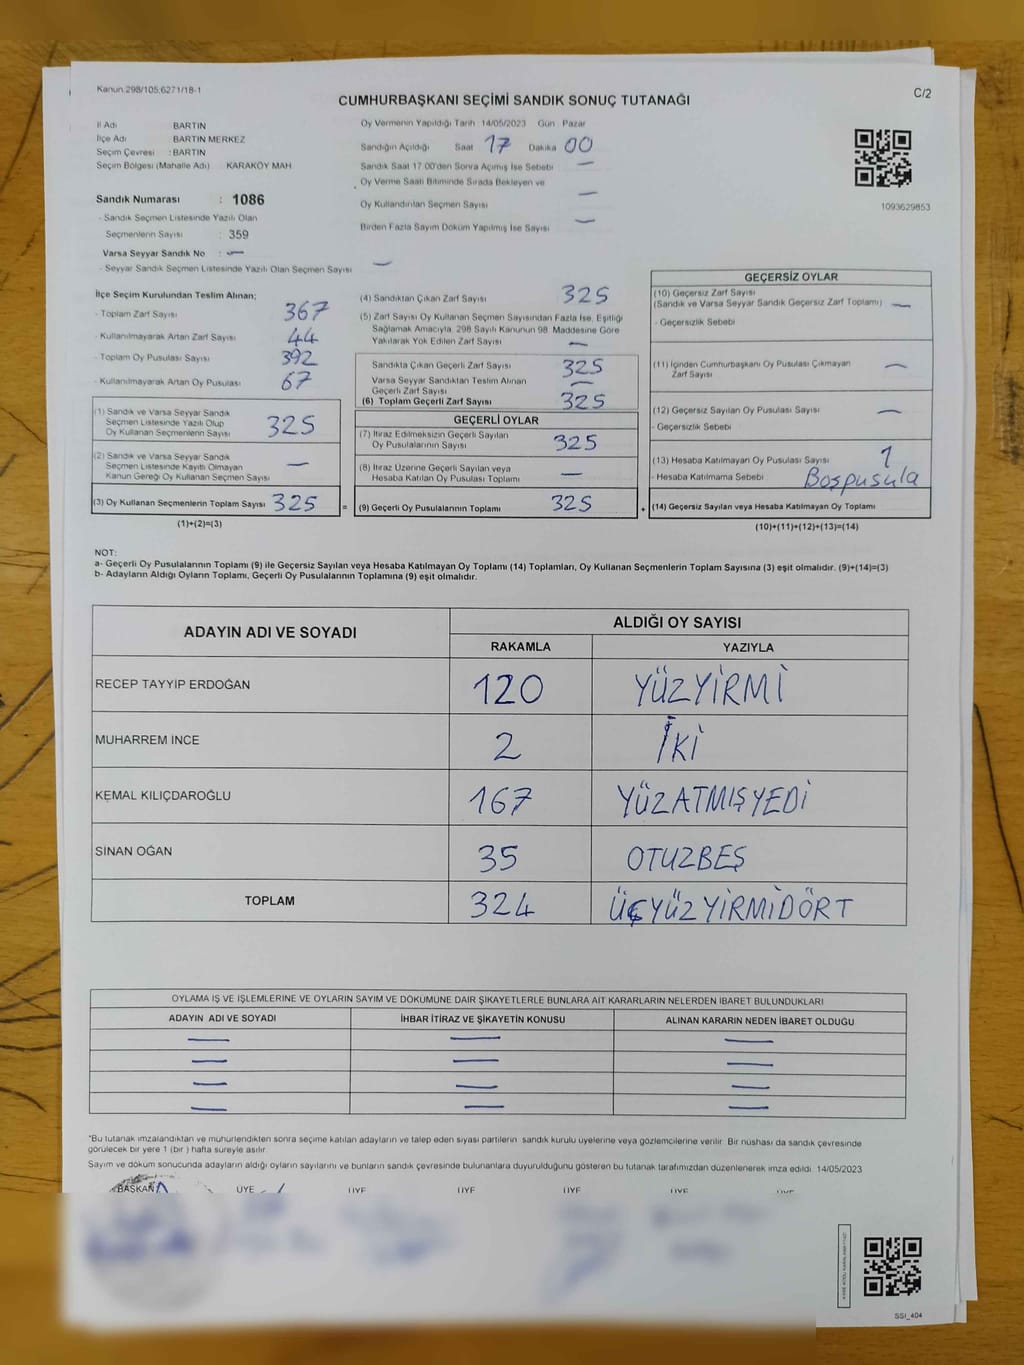 Kanun 298/105;6271/18-1
C/2
CUMHURBAŞKANI SEÇİMİ SANDIK SONUÇ TUTANAĞI
İl Adı BARTIN
İlçe Adı BARTIN MERKEZ
Seçim Çevresi : BARTIN
Seçim Bölgesi (Mahalle Adı) KARAKÖY MAH
Sandık Numarası : 1086
- Sandık Seçmen Listesinde Yazılı Olan
Seçmenlerin Sayısı : 359
Varsa Seyyar Sandık No : —
- Seyyar Sandık Seçmen Listesinde Yazılı Olan Seçmen Sayısı —
Oy Vermenin Yapıldığı Tarih 14/05/2023 Gün Pazar
Sandığın Açıldığı Saat 17 Dakika 00
Sandık Saat 17.00'den Sonra Açılmış İse Sebebi —
Oy Verme Saati Bitiminde Sırada Bekleyen ve
Oy Kullandırılan Seçmen Sayısı —
Birden Fazla Sayım Döküm Yapılmış İse Sayısı —
1093629853
İlçe Seçim Kurulundan Teslim Alınan;
- Toplam Zarf Sayısı 367
- Kullanılmayarak Artan Zarf Sayısı 44
- Toplam Oy Pusulası Sayısı 392
- Kullanılmayarak Artan Oy Pusulası 67
(1) Sandık ve Varsa Seyyar Sandık
Seçmen Listesinde Yazılı Olup
Oy Kullanan Seçmenlerin Sayısı 325
(2) Sandık ve Varsa Seyyar Sandık
Seçmen Listesinde Kayıtlı Olmayan
Kanun Gereği Oy Kullanan Seçmen Sayısı —
(3) Oy Kullanan Seçmenlerin Toplam Sayısı 325 =
(1)+(2)=(3)
(4) Sandıktan Çıkan Zarf Sayısı 325
(5) Zarf Sayısı Oy Kullanan Seçmen Sayısından Fazla İse, Eşitliği
Sağlamak Amacıyla, 298 Sayılı Kanunun 98. Maddesine Göre
Yakılarak Yok Edilen Zarf Sayısı —
Sandıkta Çıkan Geçerli Zarf Sayısı 325
Varsa Seyyar Sandıktan Teslim Alınan
Geçerli Zarf Sayısı —
(6) Toplam Geçerli Zarf Sayısı 325
GEÇERLİ OYLAR
(7) İtiraz Edilmeksizin Geçerli Sayılan
Oy Pusulalarının Sayısı 325
(8) İtiraz Üzerine Geçerli Sayılan veya
Hesaba Katılan Oy Pusulası Toplamı —
(9) Geçerli Oy Pusulalarının Toplamı 325 +
GEÇERSİZ OYLAR
(10) Geçersiz Zarf Sayısı
(Sandık ve Varsa Seyyar Sandık Geçersiz Zarf Toplamı) —
- Geçersizlik Sebebi
(11) İçinden Cumhurbaşkanı Oy Pusulası Çıkmayan
Zarf Sayısı —
(12) Geçersiz Sayılan Oy Pusulası Sayısı —
- Geçersizlik Sebebi
(13) Hesaba Katılmayan Oy Pusulası Sayısı 1
- Hesaba Katılmama Sebebi Boşpusula
(14) Geçersiz Sayılan veya Hesaba Katılmayan Oy Toplamı
(10)+(11)+(12)+(13)=(14)
NOT:
a- Geçerli Oy Pusulalarının Toplamı (9) ile Geçersiz Sayılan veya Hesaba Katılmayan Oy Toplamı (14) Toplamları, Oy Kullanan Seçmenlerin Toplam Sayısına (3) eşit olmalıdır. (9)+(14)=(3)
b- Adayların Aldığı Oyların Toplamı, Geçerli Oy Pusulalarının Toplamına (9) eşit olmalıdır.
ADAYIN ADI VE SOYADI ALDIĞI OY SAYISI
RAKAMLA YAZIYLA
RECEP TAYYİP ERDOĞAN 120 YÜZYİRMİ
MUHARREM İNCE 2 İKİ
KEMAL KILIÇDAROĞLU 167 YÜZATMIŞYEDİ
SİNAN OĞAN 35 OTUZBEŞ
TOPLAM 324 ÜÇYÜZYİRMİDÖRT
OYLAMA İŞ VE İŞLEMLERİNE VE OYLARIN SAYIM VE DÖKÜMÜNE DAİR ŞİKAYETLERLE BUNLARA AİT KARARLARIN NELERDEN İBARET BULUNDUKLARI
ADAYIN ADI VE SOYADI İHBAR İTİRAZ VE ŞİKAYETİN KONUSU ALINAN KARARIN NEDEN İBARET OLDUĞU
— — —
— — —
— — —
— — —
*Bu tutanak imzalandıktan ve mühürlendikten sonra seçime katılan adayların ve talep eden siyasi partilerin sandık kurulu üyelerine veya gözlemcilerine verilir. Bir nüshası da sandık çevresinde
görülecek bir yere 1 (bir) hafta süreyle asılır.
Sayım ve döküm sonucunda adayların aldığı oyların sayılarını ve bunların sandık çevresinde bulunanlara duyurulduğunu gösteren bu tutanak tarafımızdan düzenlenerek imza edildi. 14/05/2023
BAŞKAN ÜYE ÜYE ÜYE ÜYE ÜYE ÜYE
SSI_404